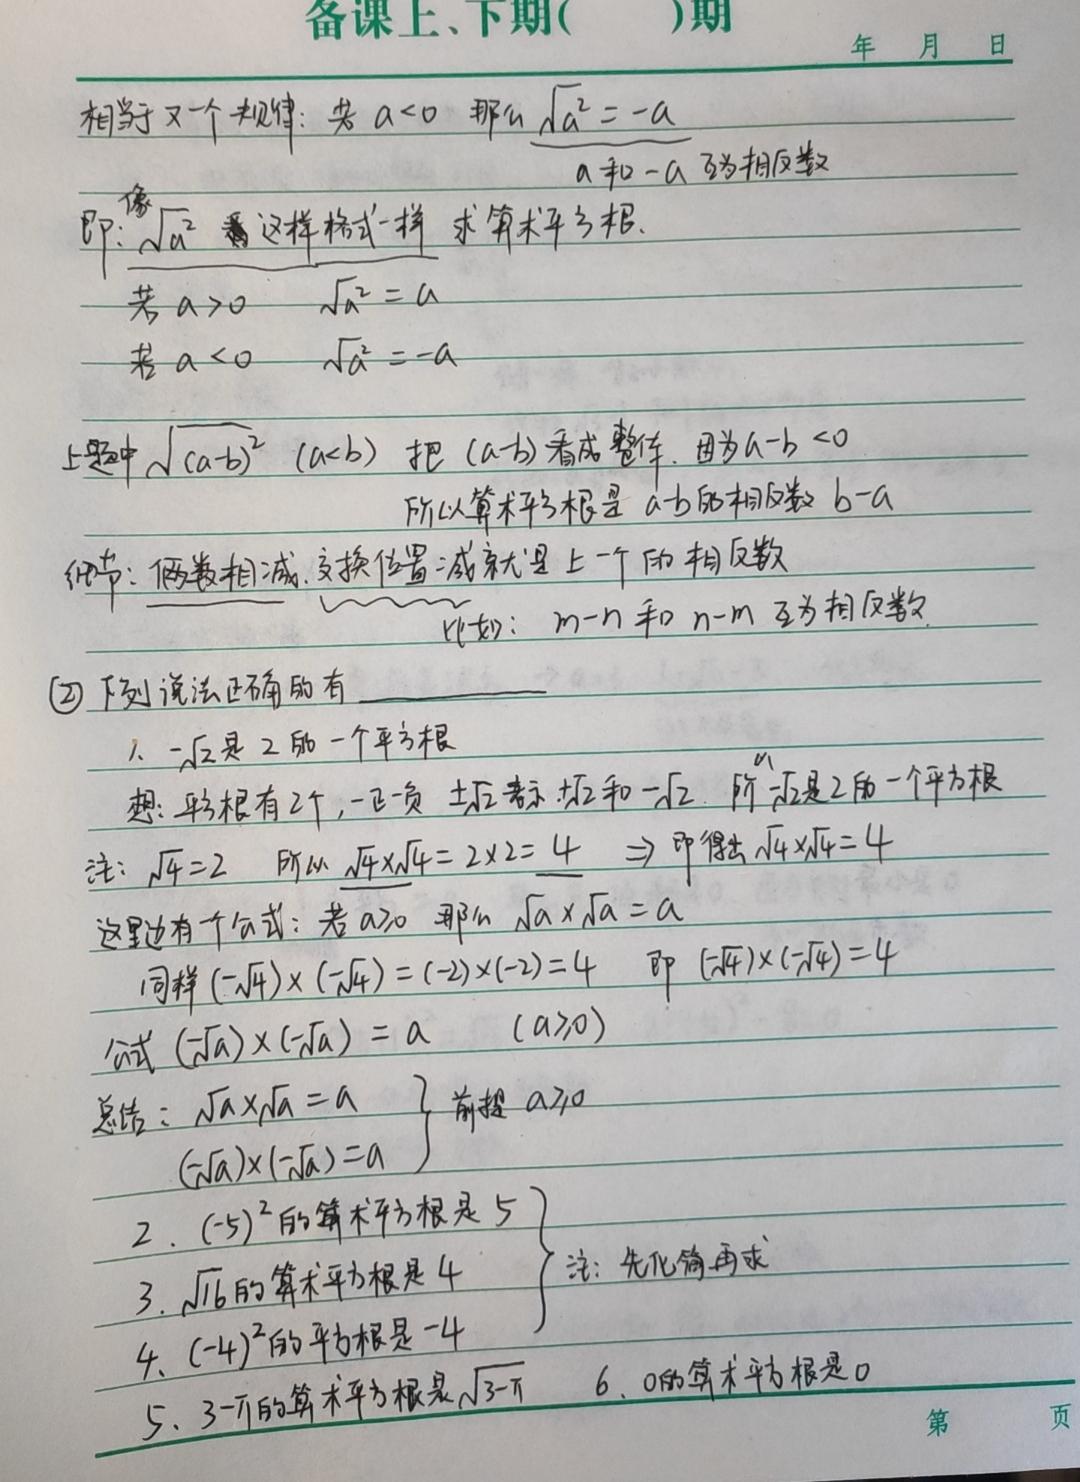 备课上、下期( )期
年 月 日
相当于又一个规律: 若 a<0 那么 √a² = -a
a 和 -a 互为相反数
即: 像√a² 这样格式一样 求算术平方根.
若 a>0 √a² = a
若 a<0 √a² = -a
上题中 √(a-b)² (a<b) 把 (a-b) 看成整体. 因为 a-b <0
所以算术平方根是 a-b的相反数 b-a
细节: 俩数相减.交换位置减就是上一个的相反数
比如: m-n 和 n-m 互为相反数.
② 下列说法正确的有
1、-√2是 2 的一个平方根
想: 平方根有2个,一正一负 ±√2表示+√2和-√2. 所以-√2是2的一个平方根
注: √4=2 所以 √4×√4=2×2=4 ⇒ 即得出 √4×√4=4
这里边有个公式: 若 a≥0 那么 √a × √a = a
同样 (-√4) × (-√4) = (-2)×(-2)=4 即 (-√4)×(-√4)=4
公式 (-√a)×(-√a) = a (a≥0)
总结: √a×√a = a } 前提 a≥0
(-√a)×(-√a)=a
2、(-5)²的算术平方根是 5
3、√16的算术平方根是 4 } 注: 先化简再求
4、(-4)²的平方根是 -4
5、3-π的算术平方根是√3-π 6、0的算术平方根是0
第 页